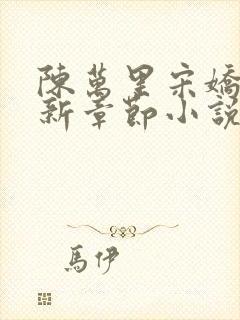 陳萬里宋嬌
新章節小說
馬伊